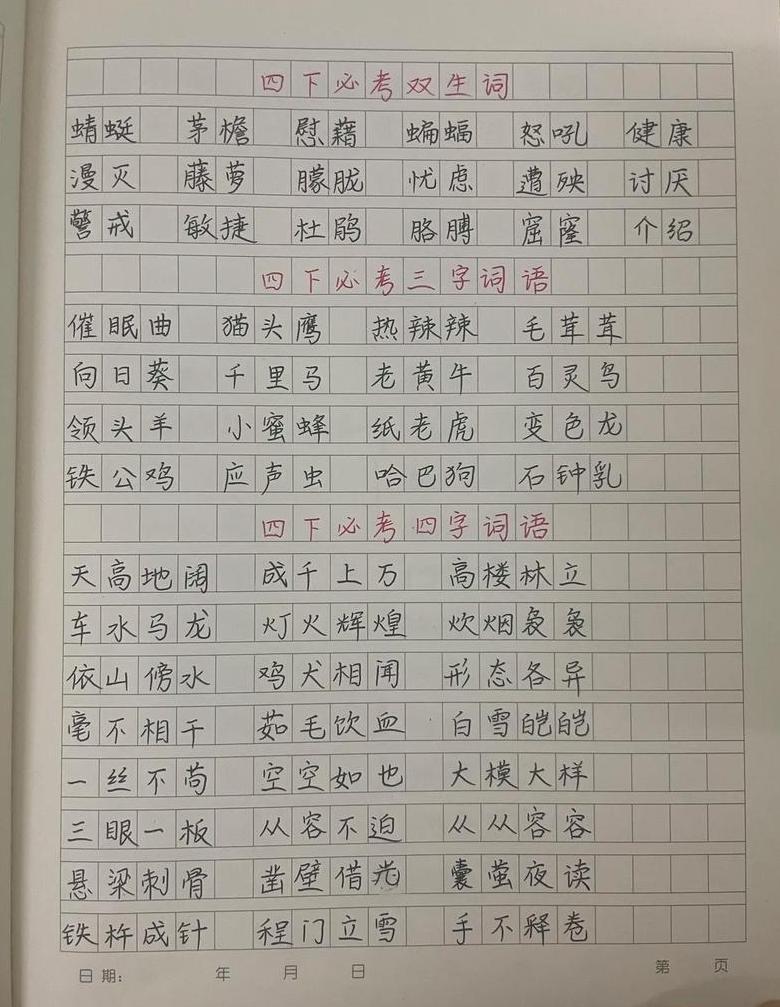 四下必考双生词
蜻蜓 茅檐 慰藉 蝙蝠 怒吼 健康
漫灭 藤萝 朦胧 忧虑 遭殃 讨厌
警戒 敏捷 杜鹃 胳膊 窟窿 介绍
四下必考三字词语
催眠曲 猫头鹰 热辣辣 毛茸茸
向日葵 千里马 老黄牛 百灵鸟
领头羊 小蜜蜂 纸老虎 变色龙
铁公鸡 应声虫 哈巴狗 石钟乳
四下必考四字词语
天高地阔 成千上万 高楼林立
车水马龙 灯火辉煌 炊烟袅袅
依山傍水 鸡犬相闻 形态各异
毫不相干 茹毛饮血 白雪皑皑
一丝不苟 空空如也 大模大样
三眼一板 从容不迫 从从容容
悬梁刺骨 凿壁借光 囊萤夜读
铁杵成针 程门立雪 手不释卷
日期: 年 月 日 第 页